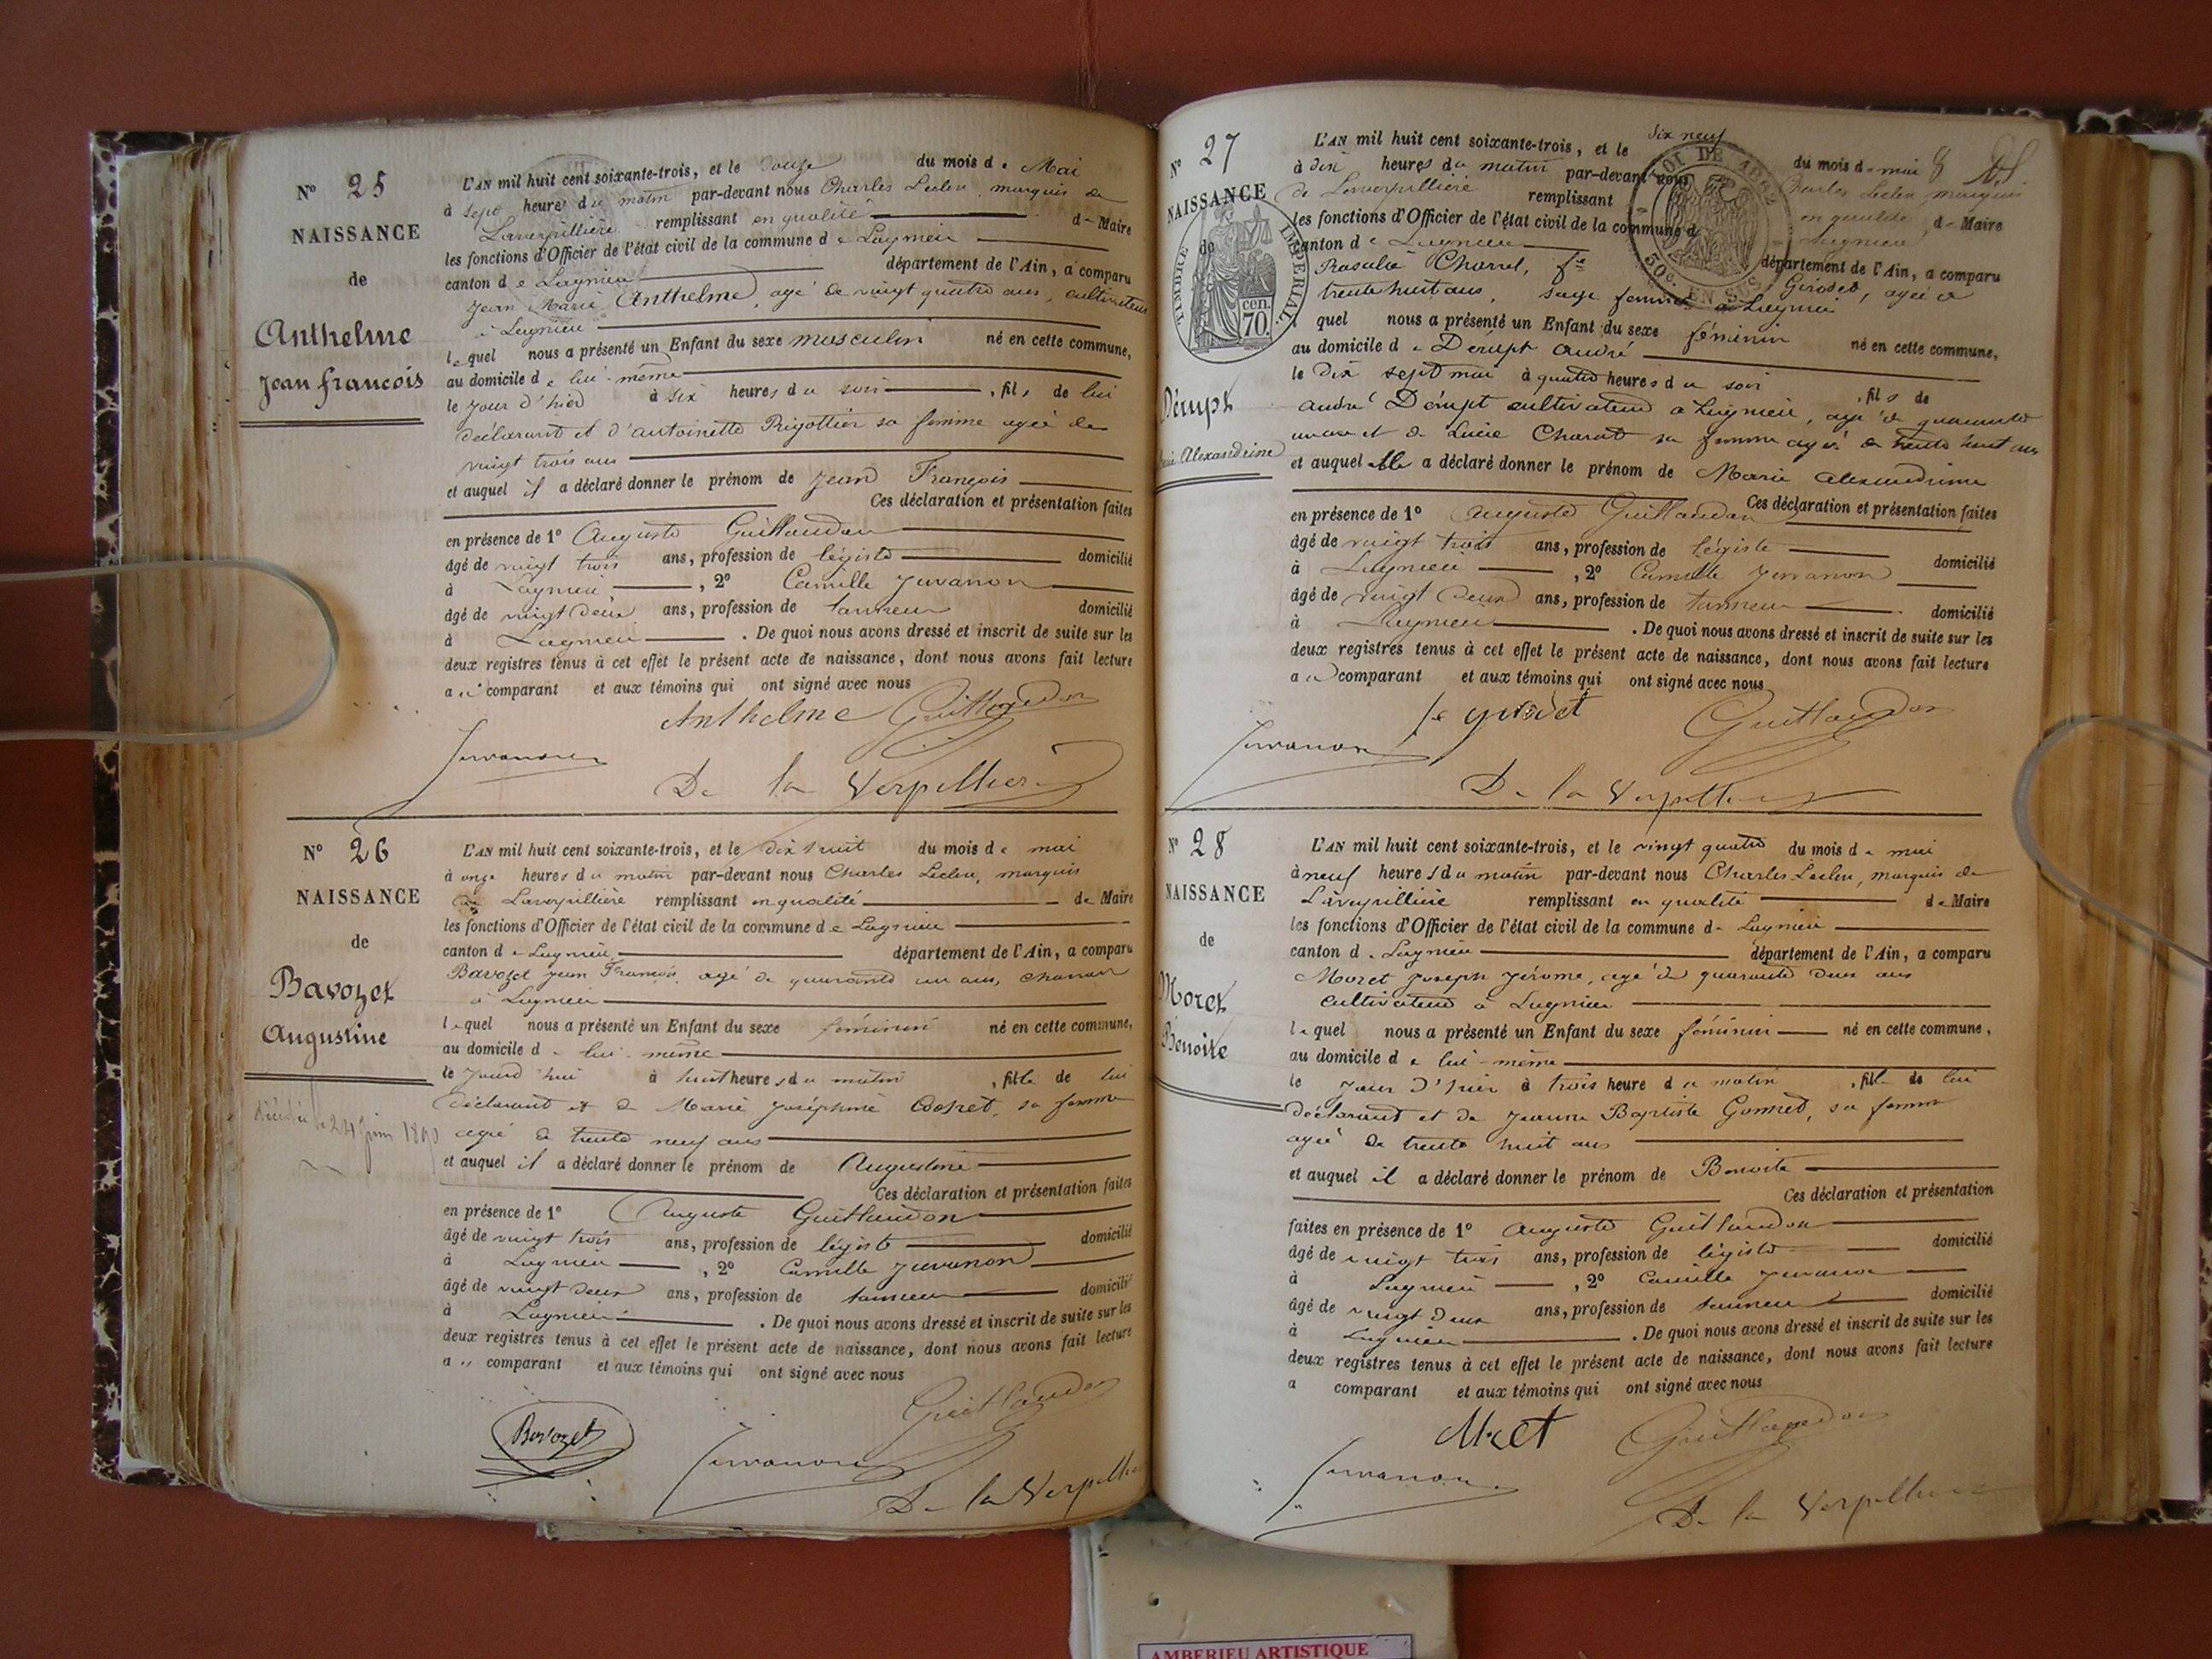 N° 25
NAISSANCE
de
Anthelme
Jean francois
L'AN mil huit cent soixante-trois, et le douze du mois de Mai
à sept heures du matin par-devant nous Charles Leclerc, marquis de
Laverpillière remplissant en qualité de Maire
les fonctions d'Officier de l'état civil de la commune de Lagnieu
canton de Lagnieu département de l'Ain, a comparu
Jean Marie Anthelme, agé de vingt quatre ans, cultivateur
à Lagnieu
lequel nous a présenté un Enfant du sexe masculin né en cette commune,
au domicile de lui-même
le jour d'hier à six heures du soir, fils de lui
déclarant et d'antoinette Rigottier sa femme agée de
vingt trois ans
et auquel il a déclaré donner le prénom de Jean François
Ces déclaration et présentation faites
en présence de 1° Auguste Guillaudon
âgé de vingt trois ans, profession de légiste domicilié
à Lagnieu, 2° Camille Juvanon
âgé de vingt deux ans, profession de tanneur domicilié
à Lagnieu. De quoi nous avons dressé et inscrit de suite sur les
deux registres tenus à cet effet le présent acte de naissance, dont nous avons fait lecture
au comparant et aux témoins qui ont signé avec nous
Anthelme Guillaudon
Juvanon
De la Verpillière
N° 26
NAISSANCE
de
Bavozet
Augustine
décédée le 24 juin 1890
L'AN mil huit cent soixante-trois, et le dix huit du mois de mai
à onze heures du matin par-devant nous Charles Leclerc, marquis
de Laverpillière remplissant en qualité de Maire
les fonctions d'Officier de l'état civil de la commune de Lagnieu
canton de Lagnieu, département de l'Ain, a comparu
Bavozet jean François, agé de quarante un ans,
à Lagnieu
lequel nous a présenté un Enfant du sexe féminin né en cette commune,
au domicile de lui-même
le jourd'hui à huit heures du matin, fille de lui
déclarant et de Marie Joséphine Cochet, sa femme
agée de trente neuf ans
et auquel il a déclaré donner le prénom de Augustine
Ces déclaration et présentation faites
en présence de 1° Auguste Guillaudon
âgé de vingt trois ans, profession de légiste domicilié
à Lagnieu, 2° Camille Juvanon
âgé de vingt deux ans, profession de tanneur domicilié
à Lagnieu. De quoi nous avons dressé et inscrit de suite sur les
deux registres tenus à cet effet le présent acte de naissance, dont nous avons fait lecture
au comparant et aux témoins qui ont signé avec nous
Guillaudon
Bavozet Juvanon
De la Verpillière
N° 27
NAISSANCE
de
TIMBRE IMPERIAL
cen. 70.
LOI DE 1862
50c. EN SUS
Dérupt
Marie Alexandrine
L'AN mil huit cent soixante-trois, et le dix neuf du mois de mai 8
à dix heures du matin par-devant nous Charles Leclerc marquis
de Laverpillière remplissant en qualité de Maire
les fonctions d'Officier de l'état civil de la commune d Lagnieu
canton de Lagnieu département de l'Ain, a comparu
Rosalie Charrel, fe Girodet, agée de
trente huit ans, sage femme à Lagnieu
l quel nous a présenté un Enfant du sexe féminin né en cette commune,
au domicile de Dérupt André
le dix sept mai à quatre heures du soir, fils de
andré Dérupt cultivateur à Lagnieu, agé de quarante
un ans et de Lucie Charat sa femme agée de trente huit ans
et auquel elle a déclaré donner le prénom de Marie alexandrine
Ces déclaration et présentation faites
en présence de 1° Auguste Guillaudon
âgé de vingt trois ans, profession de légiste domicilié
à Lagnieu, 2° Camille Juvanon
âgé de vingt deux ans, profession de tanneur domicilié
à Lagnieu. De quoi nous avons dressé et inscrit de suite sur les
deux registres tenus à cet effet le présent acte de naissance, dont nous avons fait lecture
au comparant et aux témoins qui ont signé avec nous
fe girodet Guillaudon
Juvanon
De la Verpillière
N° 28
NAISSANCE
de
Moret
Benoite
L'AN mil huit cent soixante-trois, et le vingt quatre du mois de mai
à neuf heures du matin par-devant nous Charles Leclerc, marquis de
Laverpillière remplissant en qualité de Maire
les fonctions d'Officier de l'état civil de la commune de Lagnieu
canton de Lagnieu département de l'Ain, a comparu
Moret Joseph Jérome, agé de quarante deux ans
cultivateur à Lagnieu
lequel nous a présenté un Enfant du sexe féminin né en cette commune,
au domicile de lui-même
le jour d'hier à trois heure du matin, fille de lui
déclarant et de Jeanne Baptiste Gonnet, sa femme
agée de trente huit ans
et auquel il a déclaré donner le prénom de Benoite
Ces déclaration et présentation
faites en présence de 1° Auguste Guillaudon
âgé de vingt trois ans, profession de légiste domicilié
à Lagnieu, 2° Camille Juvanon
âgé de vingt deux ans, profession de tanneur domicilié
à Lagnieu. De quoi nous avons dressé et inscrit de suite sur les
deux registres tenus à cet effet le présent acte de naissance, dont nous avons fait lecture
a comparant et aux témoins qui ont signé avec nous
Moret Guillaudon
Juvanon
De la Verpillière
AMBERIEU ARTISTIQUE